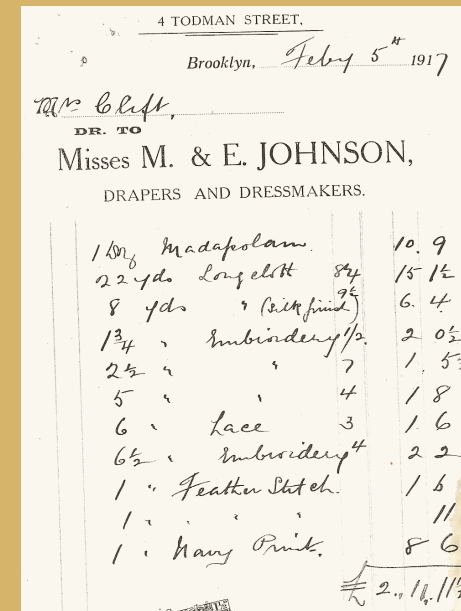 4 TODMAN STREET,
Brooklyn, Feby 5th 1917
Mrs Clift,
DR. TO
Misses M. & E. JOHNSON,
DRAPERS AND DRESSMAKERS.
1 Doz Madapolam. 10. 9
22 yds Longcloth 8¼ 15 1½
8 yds " (silk finish) 9½ 6. 4
1¾ " Embroidery 1/2 2 0½
2½ " " 7 1. 5
5 " " 4 1 8
6 " Lace 3 1 6
6½ " Embroidery 4 2 2
1 " Feather Stitch. 1 6
1 " " " 11
1 " Navy Print. 8 6
£ 2. 11. 11½